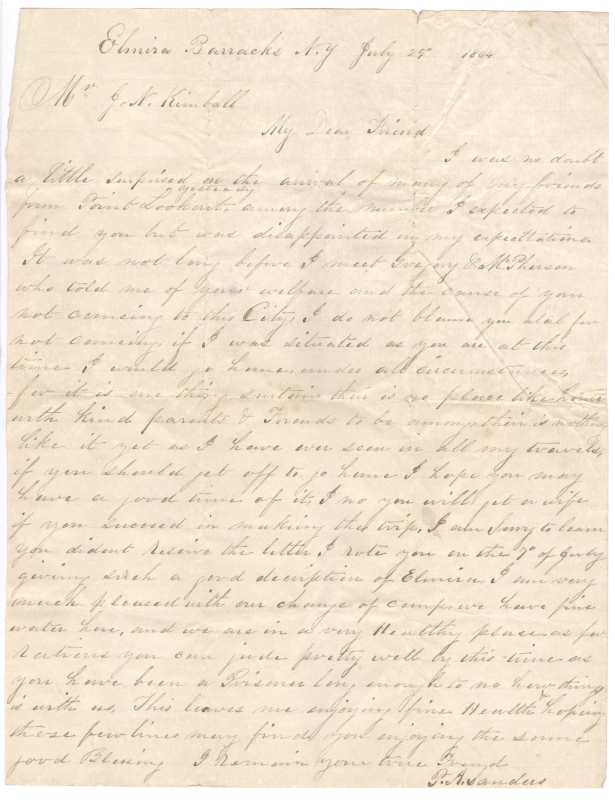 Elmira Barracks N.Y July 25th 1864
Mr J. N. Kimball
My Dear Friend
I was no doubt
a little surprised on the arrival of many of my friends
yesterday
from Point Lookout, among the number I expected to
find you but was disappointed in my expectations
It was not long before I meet & McPherson
who told me of your welfare and the cause of your
not comeing to this City, I do not blame you atal for
not comeing, if I was situated as you are at this
time I would go home, under all circumstances,
for it is one thing sirtain thar is no place like home
with kind parents & Friends to be amongst thar is nothing
like it yet as I have ever seen in all my travels,
if you should get off to go home I hope you may
have a good time of it, I no you will get a wife
if you succeed in making the trip, I am Sorry to learn
you dident Receive the letter I rote you on the 7th of July
giving such a good decription of Elmira, I am very
much pleased with our change of camp, we have fine
water here, and we are in a very Healthy place as for
Rations you can jude pretty well by this time as
you have been a Prisoner long enough to no how things
is with us, This leaves me enjoying fine Health hoping
these few lines may find you enjoying the same
good Blessing I Remain your true Friend
P. R. Sanders